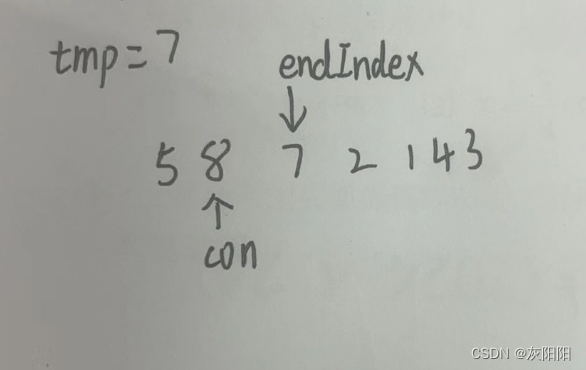 tmp=7
endIndex
↓
5 8 7 2 1 4 3
↑
con
CSDN @灰阳阳